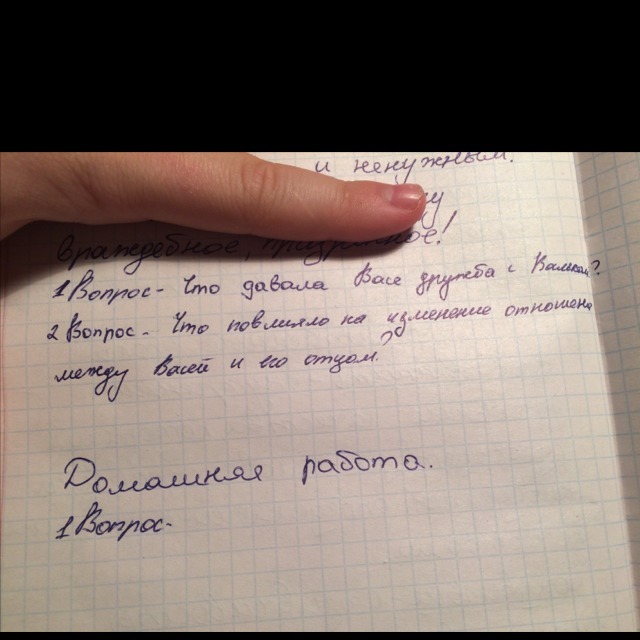 и ненужным.
враждебное, призрачное!
1 Вопрос- Что давала Васе дружба с Валеком?
2 Вопрос- Что повлияло на изменение отношена
между Васей и его отцом?
Домашняя работа.
1 Вопрос-